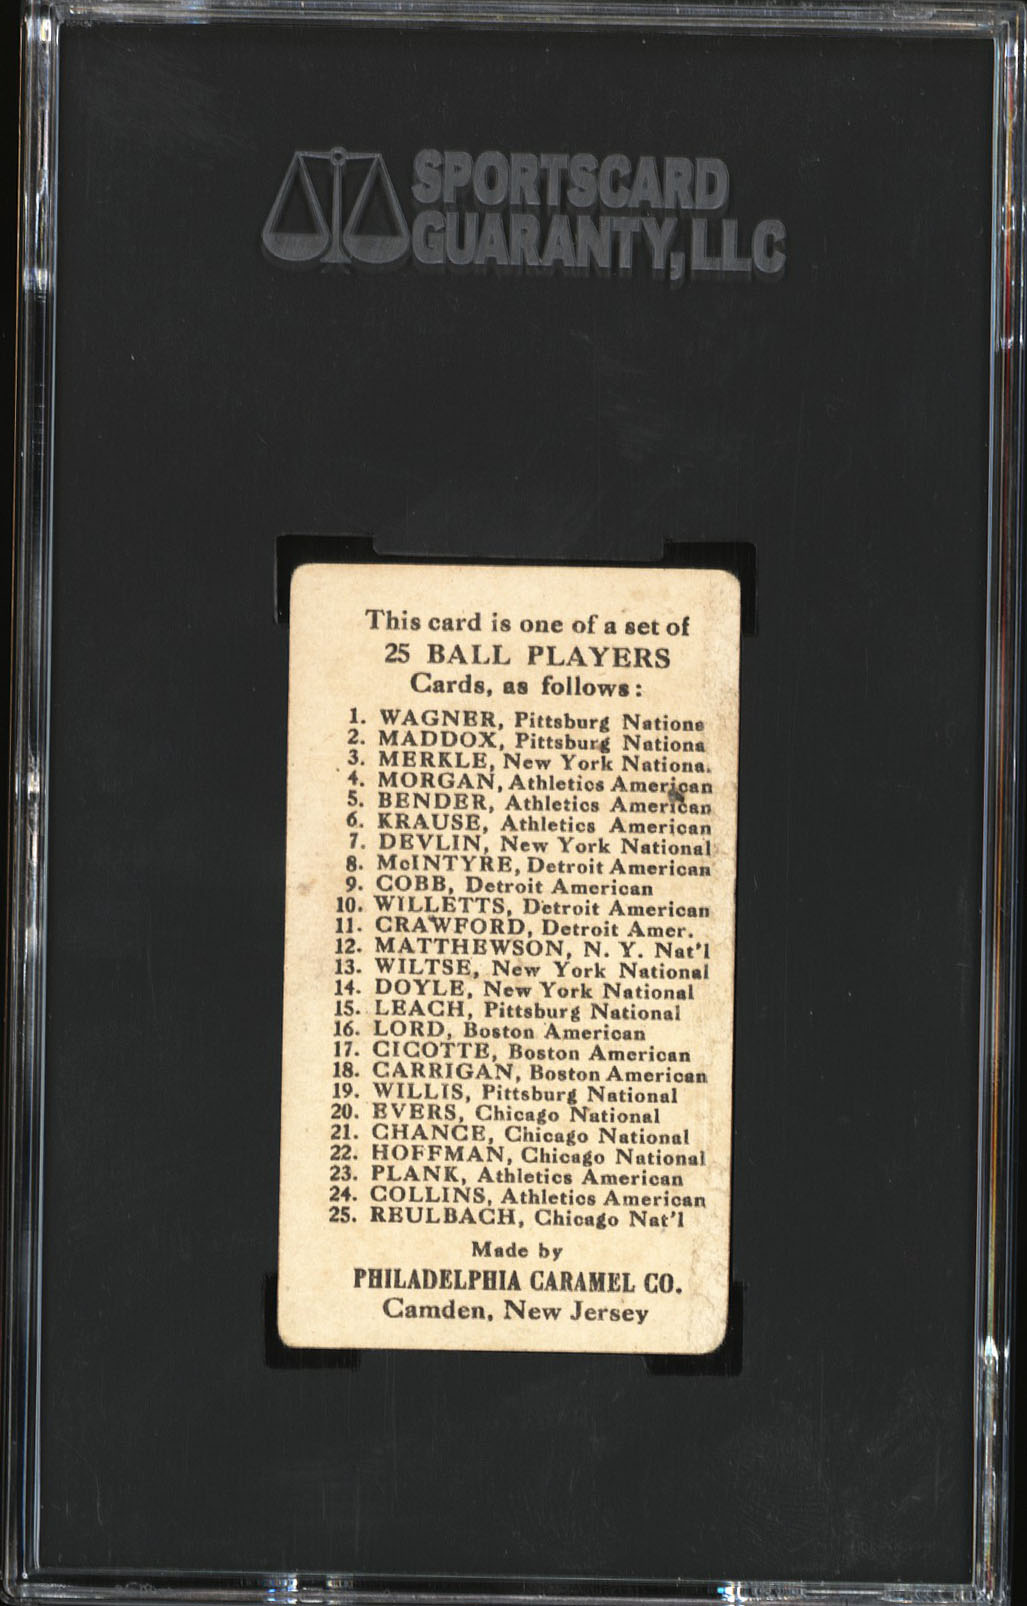 SPORTSCARD
GUARANTY, LLC
This card is one of a set of
25 BALL PLAYERS
Cards, as follows:
1. WAGNER, Pittsburg Nationa
2. MADDOX, Pittsburg Nationa
3. MERKLE, New York Nationa.
4. MORGAN, Athletics American
5. BENDER, Athletics American
6. KRAUSE, Athletics American
7. DEVLIN, New York National
8. McINTYRE, Detroit American
9. COBB, Detroit American
10. WILLETTS, Detroit American
11. CRAWFORD, Detroit Amer.
12. MATTHEWSON, N. Y. Nat'l
13. WILTSE, New York National
14. DOYLE, New York National
15. LEACH, Pittsburg National
16. LORD, Boston American
17. CICOTTE, Boston American
18. CARRIGAN, Boston American
19. WILLIS, Pittsburg National
20. EVERS, Chicago National
21. CHANCE, Chicago National
22. HOFFMAN, Chicago National
23. PLANK, Athletics American
24. COLLINS, Athletics American
25. REULBACH, Chicago Nat'l
Made by
PHILADELPHIA CARAMEL CO.
Camden, New Jersey